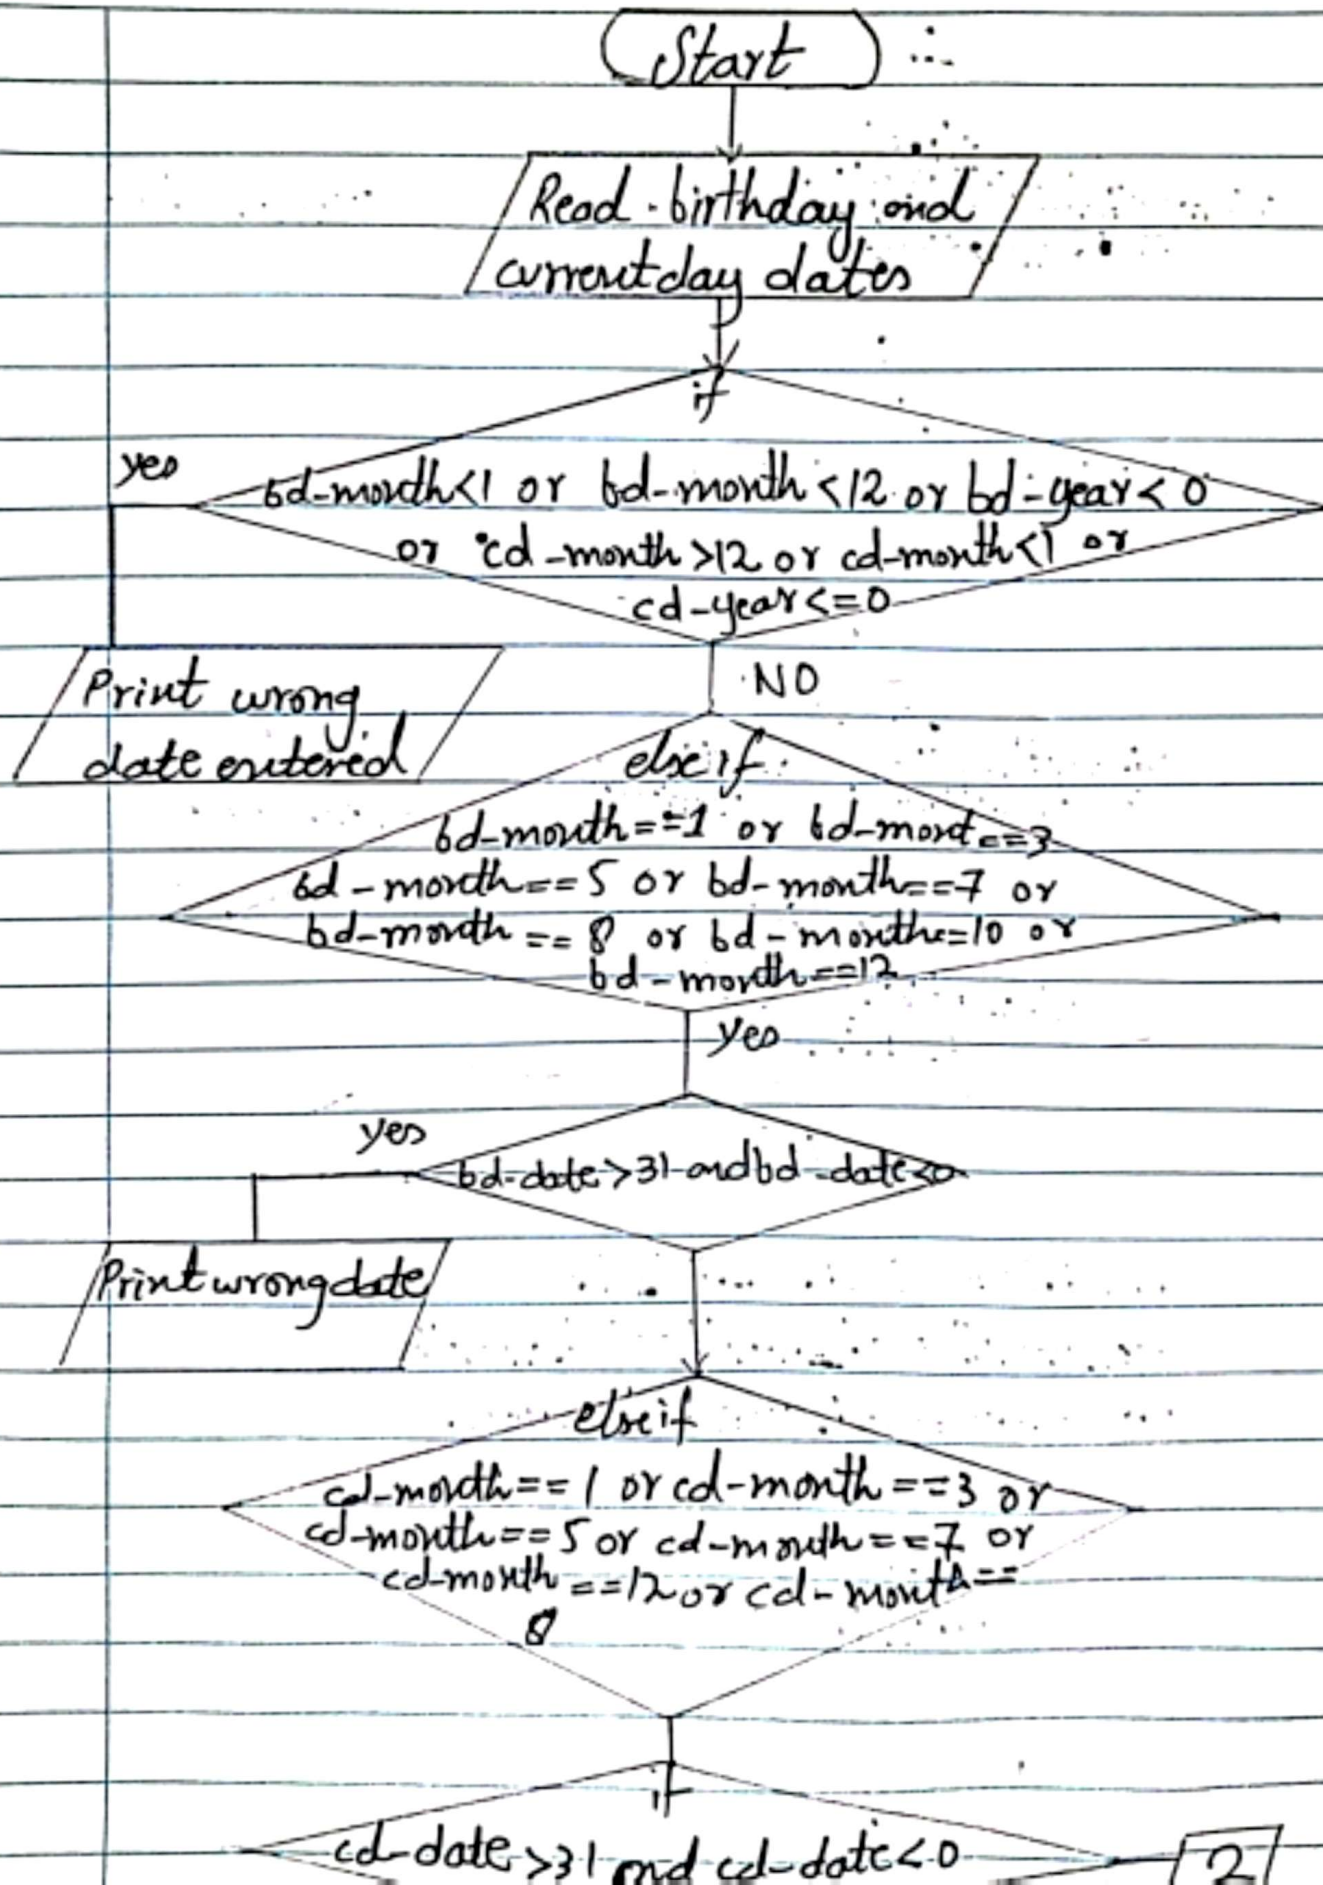 Start
Read birthday and
currentday dates
if
yes
bd-month<1 or bd-month<12 or bd-year<0
or cd-month>12 or cd-month<1 or
cd-year<=0
NO
Print wrong
date entered
else if
bd-month==1 or bd-mont==3
bd-month==5 or bd-month==7 or
bd-month==8 or bd-month==10 or
bd-month==12
yes
yes
bd-date>31 and bd-date<0
Print wrong date
else if
cd-month==1 or cd-month==3 or
cd-month==5 or cd-month==7 or
cd-month==12 or cd-month==
8
if
cd-date>31 and cd-date<0
2